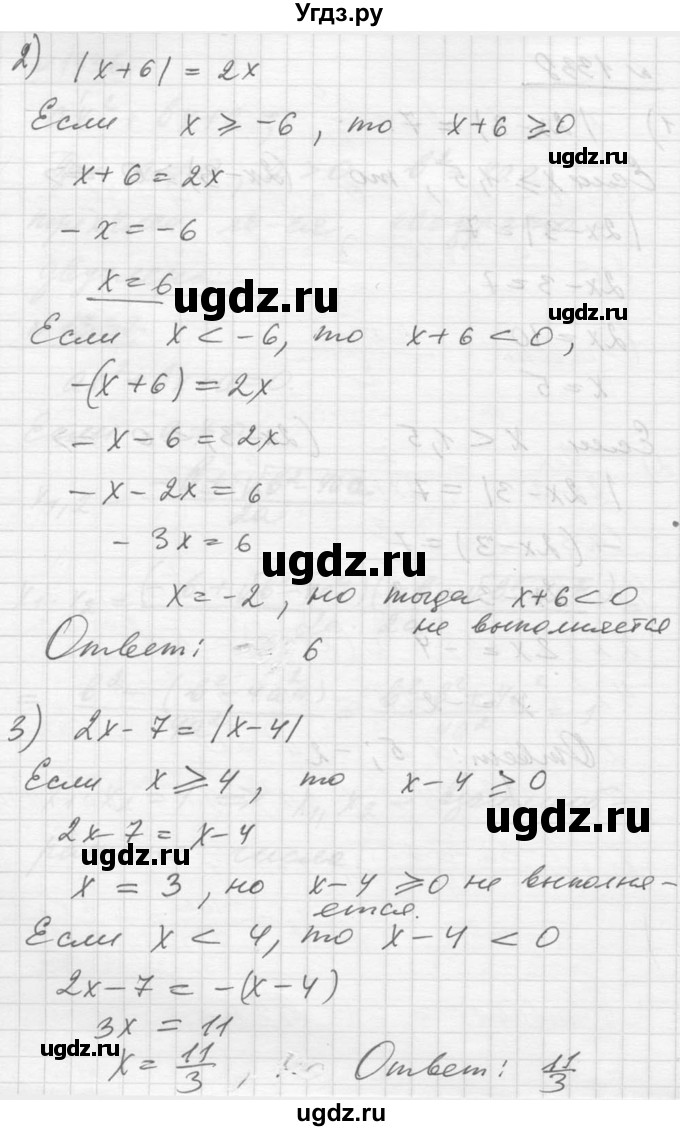 Угдз.ру
2) |x+6| = 2x
Если x ⩾ -6, то x+6 ⩾ 0
ugdz.ru
x+6 = 2x
-x = -6
x = 6
ugdz.ru
ugdz.ru
Если x < -6, то x+6 < 0,
-(x+6) = 2x
-x-6 = 2x
-x-2x = 6
-3x = 6
ugdz.ru
x = -2, но тогда x+6<0
не выполняется
Ответ: 6
3) 2x-7 = |x-4|
Если x ⩾ 4, то x-4 ⩾ 0
ugdz.ru
2x-7 = x-4
ugdz.ru
x = 3, но x-4 ⩾ 0 не выполня-
ется.
Если x < 4, то x-4 < 0
2x-7 = -(x-4)
3x = 11
ugdz.ru
x = 11/3, Ответ: 11/3
ugdz.ru